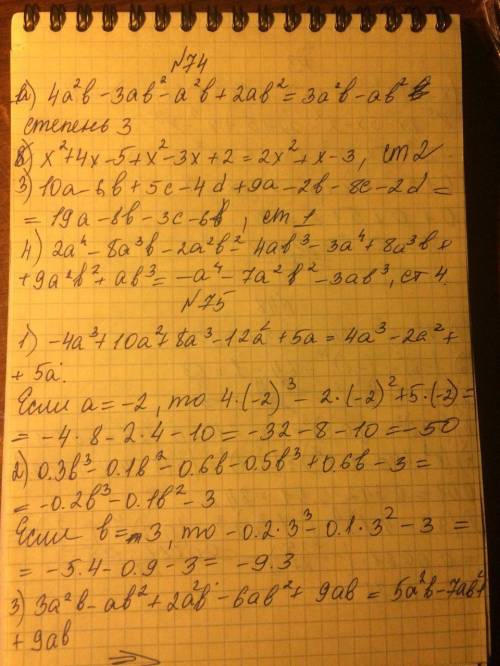 №74
а) 4a²b - 3ab² - a²b + 2ab² = 3a²b - ab²
степень 3
x² + 4x - 5 + x² - 3x + 2 = 2x² + x - 3, ст 2
3) 10a - 6b + 5c - 4d + 9a - 2b - 8c - 2d =
= 19a - 8b - 3c - 6d, ст 1
4) 2a⁴ - 8a³b - 2a²b² - 4ab³ - 3a⁴ + 8a³b +
+ 9a²b² + ab³ = -a⁴ - 7a²b² - 3ab³, ст 4.
№75
1) -4a³ + 10a² + 8a³ - 12a² + 5a = 4a³ - 2a² +
+ 5a.
Если a = -2, то 4·(-2)³ - 2·(-2)² + 5·(-2) =
= -4·8 - 2·4 - 10 = -32 - 8 - 10 = -50
2) 0.3b³ - 0.1b² - 0.6b - 0.5b³ + 0.6b - 3 =
= -0.2b³ - 0.1b² - 3
Если b = 3, то -0.2·3³ - 0.1·3² - 3 =
= -5.4 - 0.9 - 3 = -9.3
3) 3a²b - ab² + 2a²b - 6ab² + 9ab = 5a²b - 7ab² +
+ 9ab